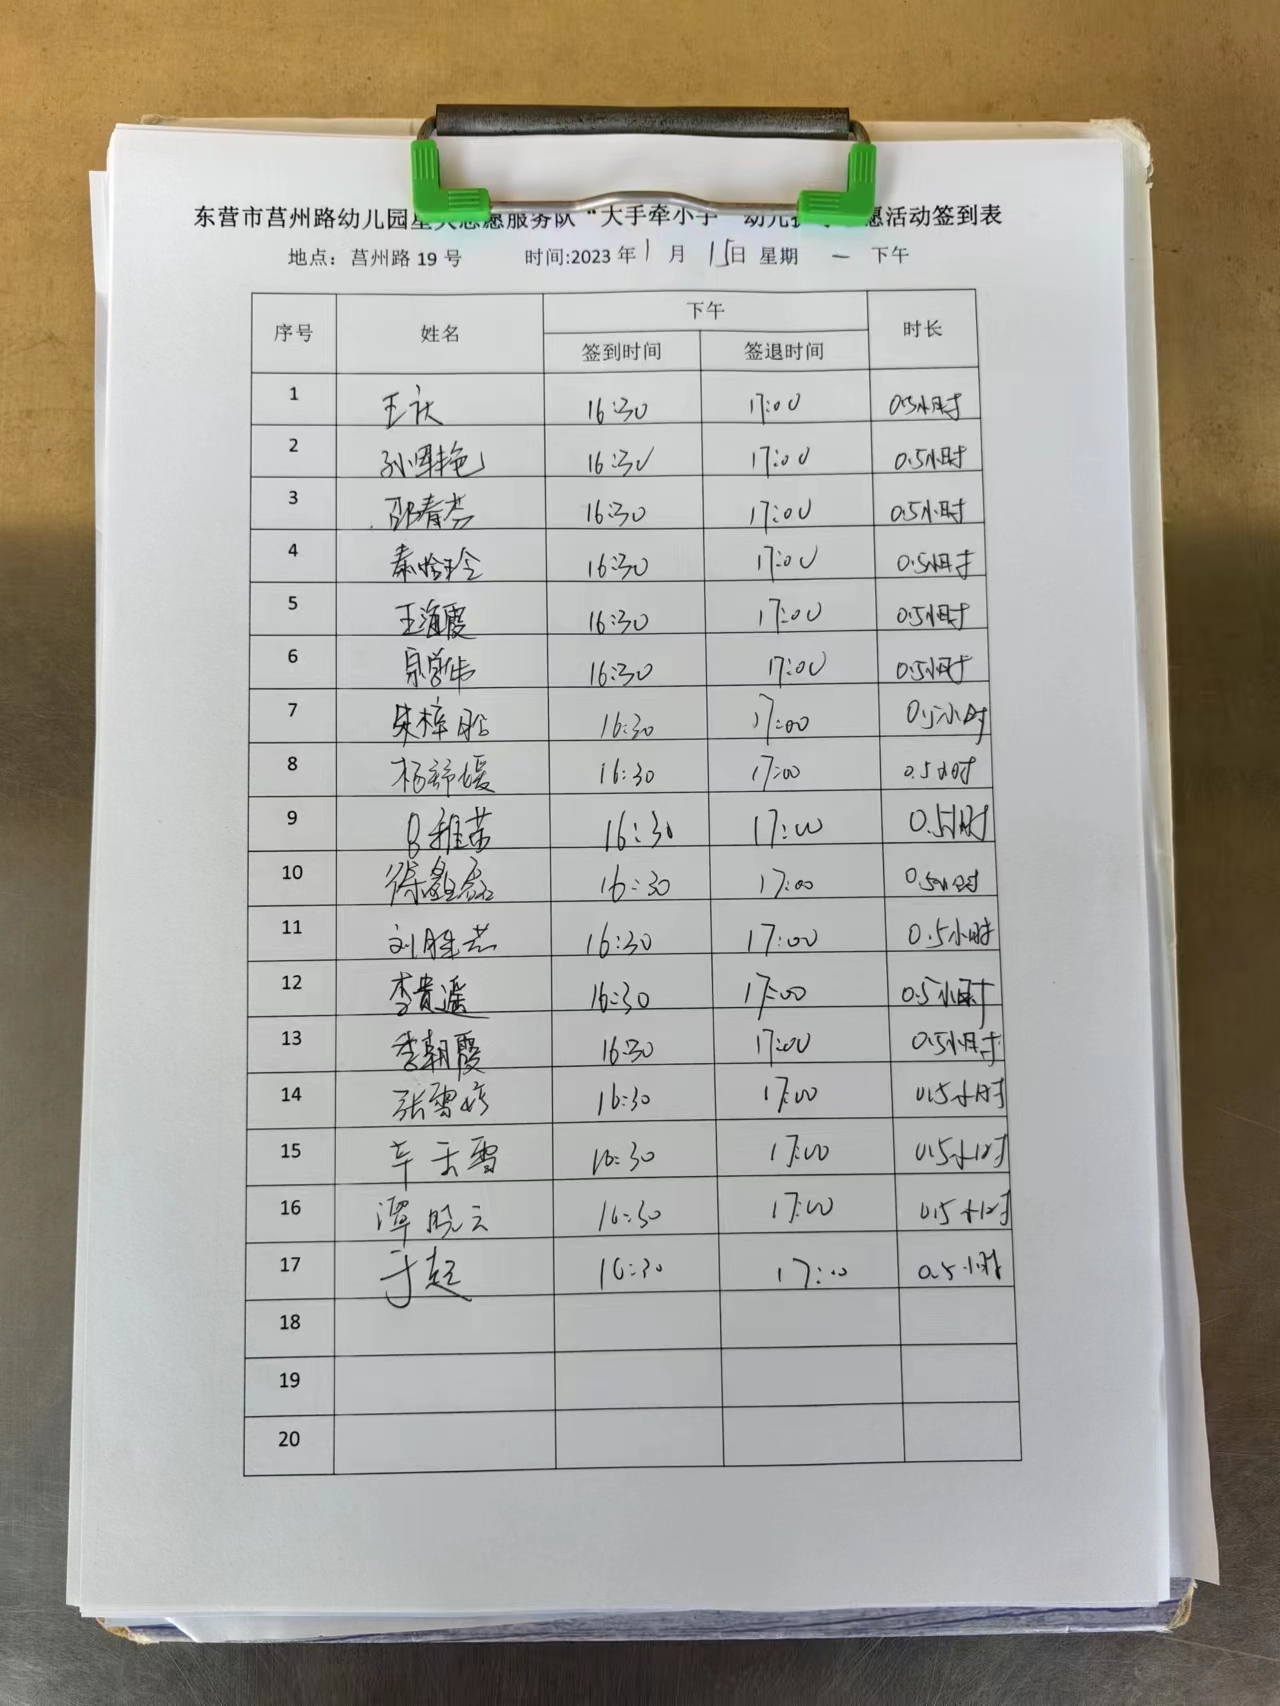 东营市莒州路幼儿园星火志愿服务队“大手牵小手”幼儿 志愿活动签到表
地点：莒州路 19 号 时间:2023 年 1 月 15日 星期 一 下午
序号 姓名 下午 时长
签到时间 签退时间
1 王 16:30 17:00 0.5小时
2 孙 艳 16:30 17:00 0.5小时
3 邵春芬 16:30 17:00 0.5小时
4 秦 玲 16:30 17:00 0.5小时
5 王海霞 16:30 17:00 0.5小时
6 16:30 17:00 0.5小时
7 朱梓 16:30 17:00 0.5小时
8 杨舒媛 16:30 17:00 0.5小时
9 雅 16:30 17:00 0.5小时
10 徐鑫磊 16:30 17:00 0.5小时
11 刘胜 16:30 17:00 0.5小时
12 李贵遥 16:30 17:00 0.5小时
13 李朝霞 16:30 17:00 0.5小时
14 张雪婷 16:30 17:00 0.5小时
15 辛 雪 16:30 17:00 0.5小时
16 谭晓云 16:30 17:00 0.5小时
17 于超 16:30 17:00 0.5小时
18
19
20